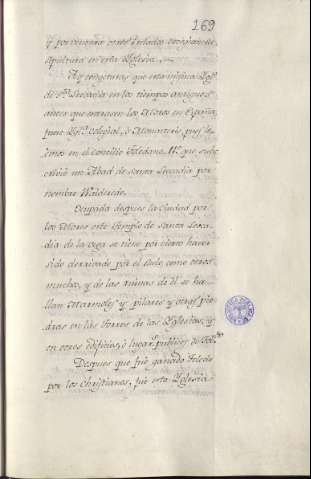 269
y por ventura otros Prelados escogian se
sepultura en esta Yglesia.
Ay congeturas que esta misma Ygl.ª
de S.ta Leocadia en los tiempos antiguos
antes que entrasen los Moros en España
fuese Ygl.ª Colegial, ò Monasterio, pues le
emos en el Concilio Toledano que subs
crivio un Abad de Santa Leocadia por
nombre
Ocupada despues la Ciudad por
los Moros este Templo de Santa Leoca
dia de la Vega se tiene por cierto haver
sido derrivado por el suelo, como otros
muchos, y de las ruinas de él se ha
llan Marmoles y pilares y otras pie
dras en las Torres de las Yglesias, y
en otros edificios, ò lugar.s publicos de Tol.do
Despues que fué ganado Toledo
por los Christianos, fué esta Yglesia